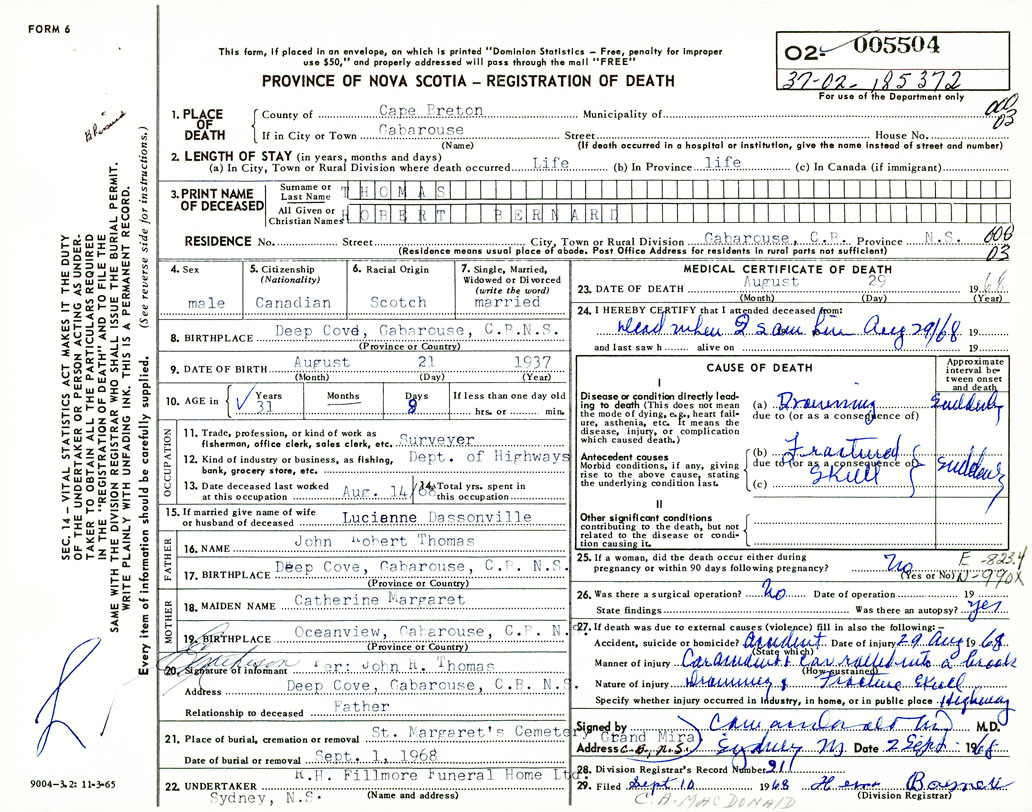 FORM 6
This form, if placed in an envelope, on which is printed "Dominion Statistics – Free, penalty for improper
use $50," and properly addressed will pass through the mail "FREE"
PROVINCE OF NOVA SCOTIA – REGISTRATION OF DEATH
02- 005504
37-02-185372
For use of the Department only
000
03
SEC. 14 – VITAL STATISTICS ACT MAKES IT THE DUTY
OF THE UNDERTAKER OR PERSON ACTING AS UNDER-
TAKER TO OBTAIN ALL THE PARTICULARS REQUIRED
IN THE "REGISTRATION OF DEATH" AND TO FILE THE
SAME WITH THE DIVISION REGISTRAR WHO SHALL ISSUE THE BURIAL PERMIT.
WRITE PLAINLY WITH UNFADING INK. THIS IS A PERMANENT RECORD.
Every item of information should be carefully supplied. (See reverse side for instructions.)
1. PLACE OF DEATH
County of Cape Breton Municipality of
If in City or Town Gabarouse Street House No.
(Name) (If death occurred in a hospital or institution, give the name instead of street and number)
2. LENGTH OF STAY (in years, months and days)
(a) In City, Town or Rural Division where death occurred Life (b) In Province life (c) In Canada (if immigrant)
3. PRINT NAME OF DECEASED
Surname or Last Name THOMAS
All Given or Christian Names ROBERT BERNARD
RESIDENCE No. Street City, Town or Rural Division Gabarouse, C.B. Province N.S.
(Residence means usual place of abode. Post Office Address for residents in rural parts not sufficient)
03
4. Sex male
5. Citizenship (Nationality) Canadian
6. Racial Origin Scotch
7. Single, Married, Widowed or Divorced (write the word) married
8. BIRTHPLACE Deep Cove, Gabarouse, C.B.N.S.
(Province or Country)
9. DATE OF BIRTH August 21 1937
(Month) (Day) (Year)
10. AGE in Years 31 Months Days 8 If less than one day old hrs. or min.
OCCUPATION
11. Trade, profession, or kind of work as fisherman, office clerk, sales clerk, etc. Surveyer
12. Kind of industry or business, as fishing, bank, grocery store, etc. Dept. of Highways
13. Date deceased last worked at this occupation Aug. 14/68
14. Total yrs. spent in this occupation
15. If married give name of wife or husband of deceased Lucienne Dassonville
FATHER
16. NAME John Robert Thomas
17. BIRTHPLACE Deep Cove, Gabarouse, C.B. N.S.
(Province or Country)
MOTHER
18. MAIDEN NAME Catherine Margaret
19. BIRTHPLACE Oceanview, Gabarouse, C.B. N.
(Province or Country)
20. Signature of informant per: John R. Thomas
Address Deep Cove, Gabarouse, C.B. N.S.
Relationship to deceased Father
21. Place of burial, cremation or removal St. Margaret's Cemetery, Grand Mira
C.B., N.S.
Date of burial or removal Sept. 1, 1968
22. UNDERTAKER R.H. Fillmore Funeral Home Ltd.
Sydney, N.S. (Name and address)
9004–3.2: 11-3-65
MEDICAL CERTIFICATE OF DEATH
23. DATE OF DEATH August 29 1968
(Month) (Day) (Year)
24. I HEREBY CERTIFY that I attended deceased from:
dead when I saw him Aug 29/68 19
and last saw h alive on 19
CAUSE OF DEATH
Approximate interval between onset and death
I
Disease or condition directly leading to death (This does not mean the mode of dying, e.g., heart failure, asthenia, etc. It means the disease, injury, or complication which caused death.)
(a) Drowning Suddenly
due to (or as a consequence of)
Antecedent causes
Morbid conditions, if any, giving rise to the above cause, stating the underlying condition last.
(b) Fractured
due to (or as a consequence of)
(c) Skull Suddenly
II
Other significant conditions contributing to the death, but not related to the disease or condition causing it.
25. If a woman, did the death occur either during
pregnancy or within 90 days following pregnancy? No
(Yes or No)
E-823.4
N-990X
26. Was there a surgical operation? No Date of operation 19
State findings Was there an autopsy? Yes
27. If death was due to external causes (violence) fill in also the following:–
Accident, suicide or homicide? Accident Date of injury 29 Aug 1968
(State which)
Manner of injury Car accident Car rolled into a brook
(How sustained)
Nature of injury Drowning & Fracture Skull
Specify whether injury occurred in industry, in home, or in public place Highway
Signed by M.D.
Address Sydney Date 2 Sept. 1968
28. Division Registrar's Record Number 91
29. Filed Sept 10 1968
(Division Registrar)
C. A. MACDONALD